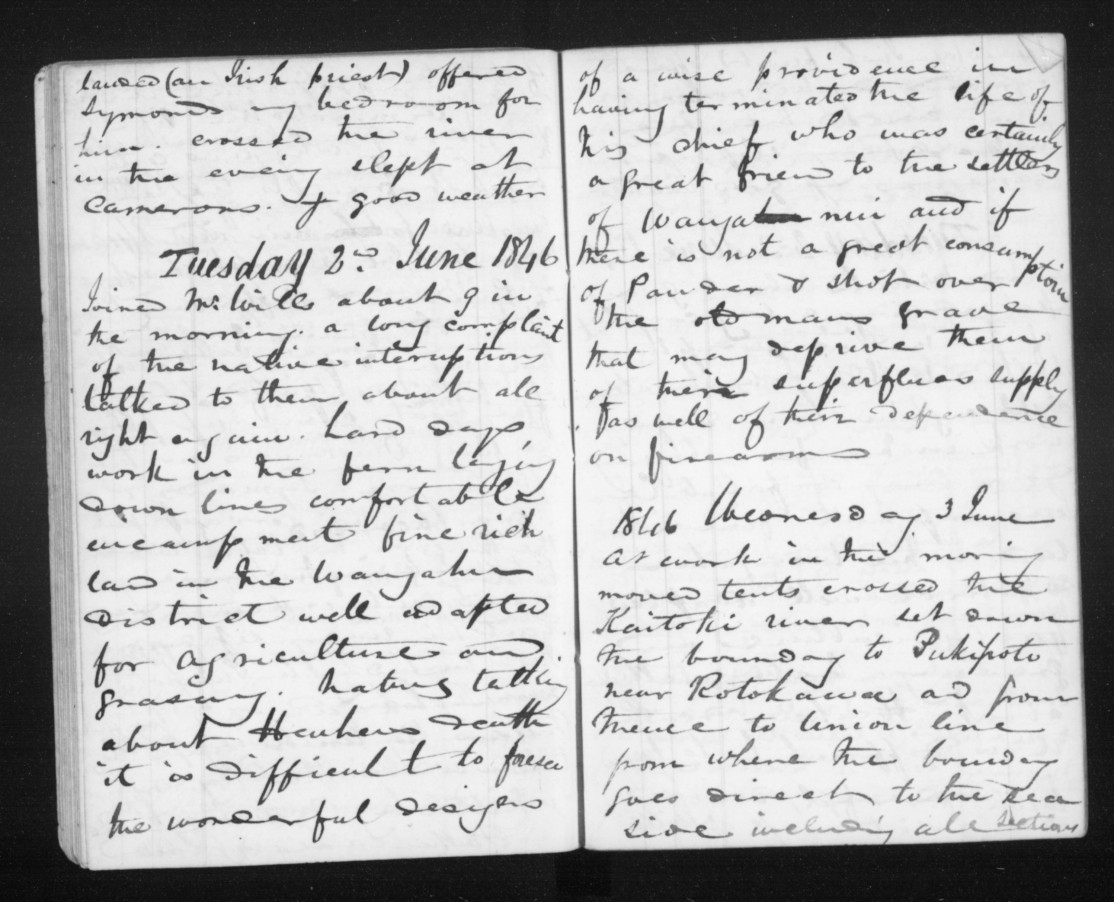 landed (an Irish priest) offered
Symonds my bedroom for
him. crossed the river
in the evening slept at
Camerons. & good weather
Tuesday 2nd June 1846
Joined Mr Wills about 9 in
the morning. a long complaint
of the native interuptions
talked to them about all
right again. hard days
work in the fern laying
down lines comfortable
encampment fine rich
land in the Wangahu
district well adapted
for agriculture and
grasing. natives talking
about Heuheus death
it is difficult to foresee
the wonderful designs
of a wise providence in
having terminated the life of
his chief who was certainly
a great frien to the settlers
of Wanganui and if
there is not a great consumption
of Pauder & shot over
the old mans grave
that may deprive them
of their superflues supply
as well of their dependence
on firearms
1846 Wednesday 3 June
at work in the morning
moved tents crossed the
Kaitoki river set down
the bounday to Pukipoto
near Rotokawa and from
thence to Union line
from where the bounday
goes direct to the sea
side including all sections